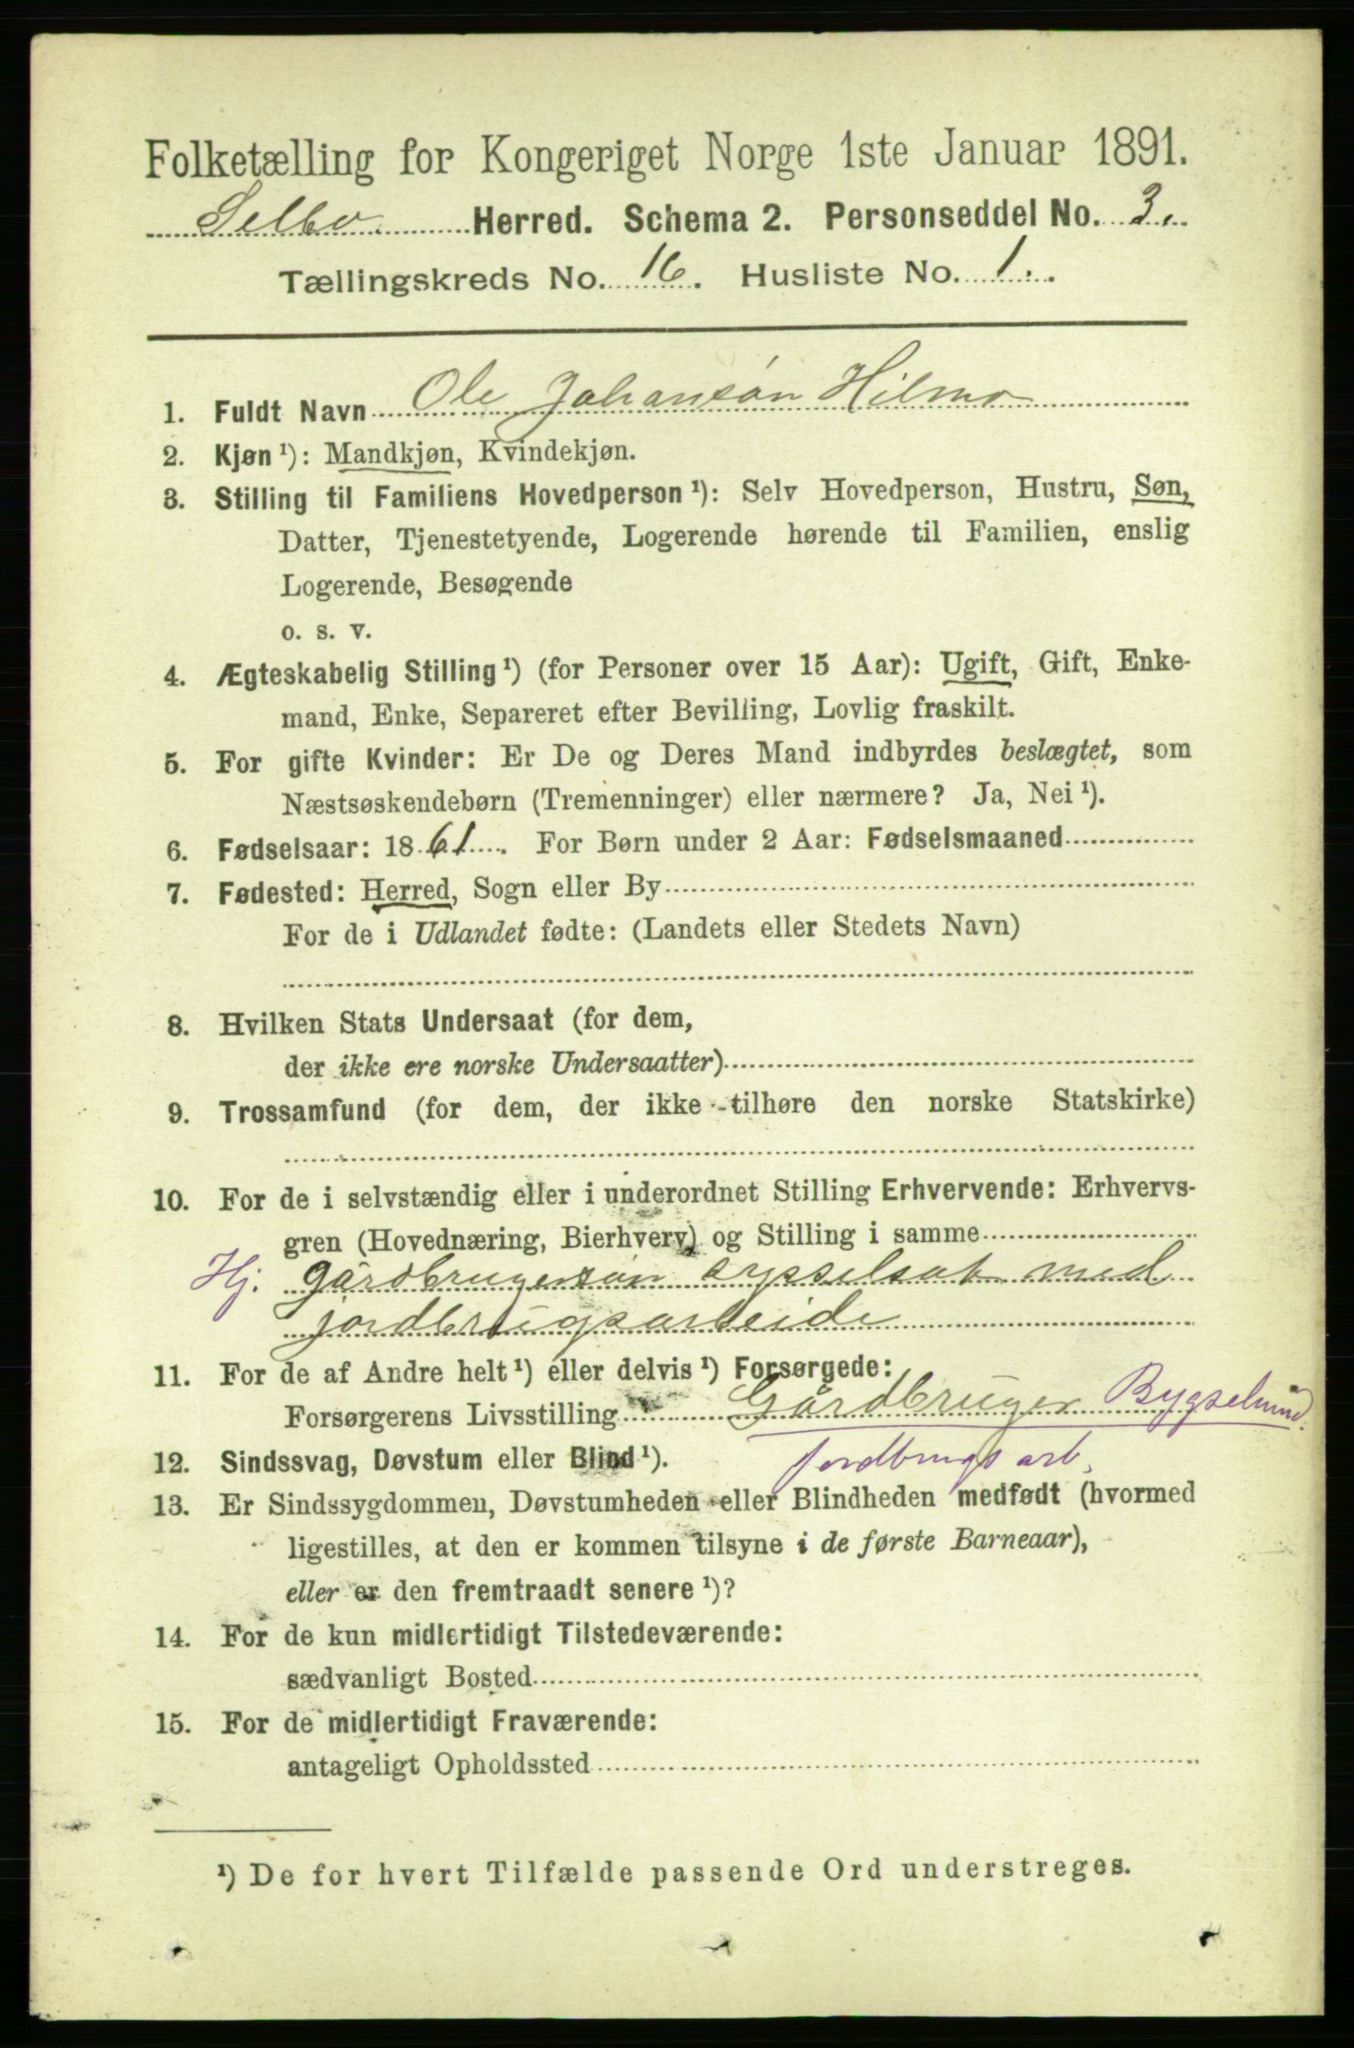 Folketælling for Kongeriget Norge 1ste Januar 1891.
Selbo Herred. Schema 2. Personseddel No. 3.
Tællingskreds No. 16. Husliste No. 1.
1. Fuldt Navn Ole Johansøn Hilmo
2. Kjøn ¹): Mandkjøn, Kvindekjøn.
3. Stilling til Familiens Hovedperson ¹): Selv Hovedperson, Hustru, Søn,
Datter, Tjenestetyende, Logerende hørende til Familien, enslig
Logerende, Besøgende
o. s. v.
4. Ægteskabelig Stilling ¹) (for Personer over 15 Aar): Ugift, Gift, Enke-
mand, Enke, Separeret efter Bevilling, Lovlig fraskilt.
5. For gifte Kvinder: Er De og Deres Mand indbyrdes beslægtet, som
Næstsøskendebørn (Tremenninger) eller nærmere? Ja, Nei ¹).
6. Fødselsaar: 1861. For Børn under 2 Aar: Fødselsmaaned
7. Fødested: Herred, Sogn eller By
For de i Udlandet fødte: (Landets eller Stedets Navn)
8. Hvilken Stats Undersaat (for dem,
der ikke ere norske Undersaatter)
9. Trossamfund (for dem, der ikke tilhøre den norske Statskirke)
10. For de i selvstændig eller i underordnet Stilling Erhvervende: Erhvervs-
gren (Hovednæring, Bierhverv) og Stilling i samme
Hj. Gårdbrugersøn sysselsat med
jordbrugsarbeide
11. For de af Andre helt ¹) eller delvis ¹) Forsørgede:
Forsørgerens Livsstilling Gårdbruger Bygselmd.
jordbrugsarb.
12. Sindssvag, Døvstum eller Blind ¹).
13. Er Sindssygdommen, Døvstumheden eller Blindheden medfødt (hvormed
ligestilles, at den er kommen tilsyne i de første Barneaar),
eller er den fremtraadt senere ¹)?
14. For de kun midlertidigt Tilstedeværende:
sædvanligt Bosted
15. For de midlertidigt Fraværende:
antageligt Opholdssted
¹) De for hvert Tilfælde passende Ord understreges.